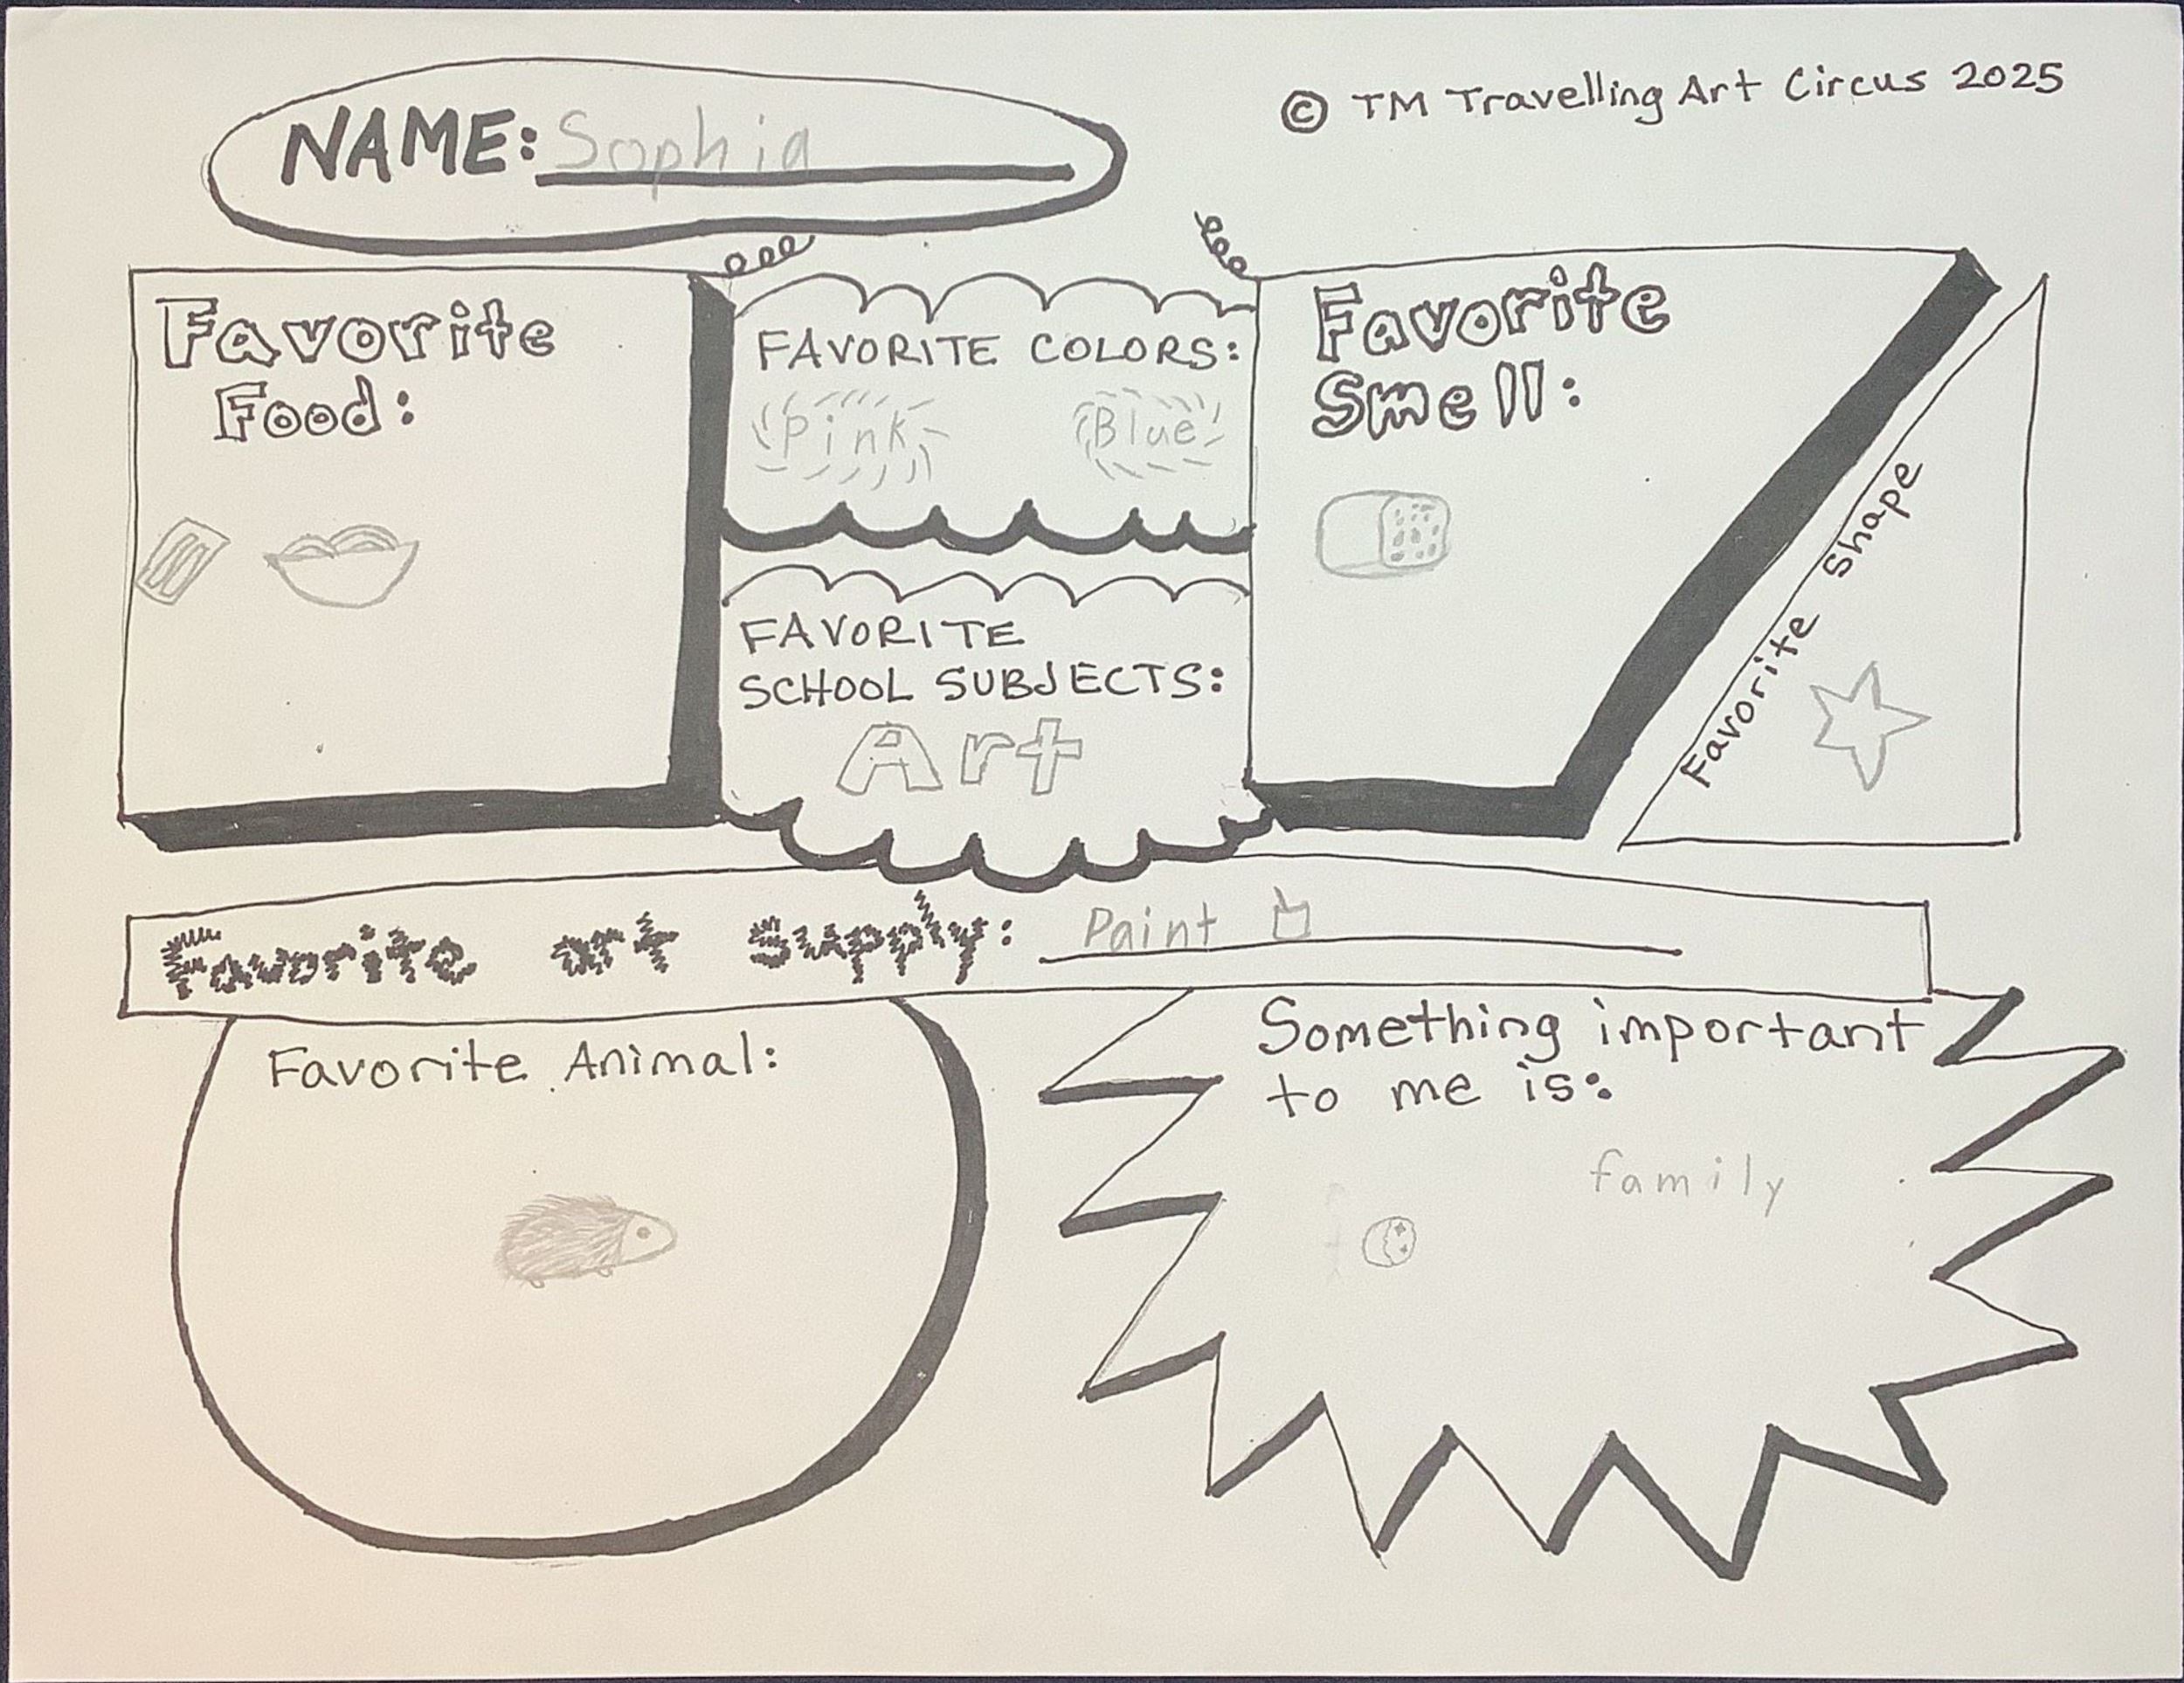 NAME: Sophia
© TM Travelling Art Circus 2025
Favorite
Food:
FAVORITE COLORS:
Pink Blue
FAVORITE
SCHOOL SUBJECTS:
Art
Favorite
Smell:
Favorite Shape
Favorite art supply: Paint
Favorite Animal:
Something important
to me is:
family